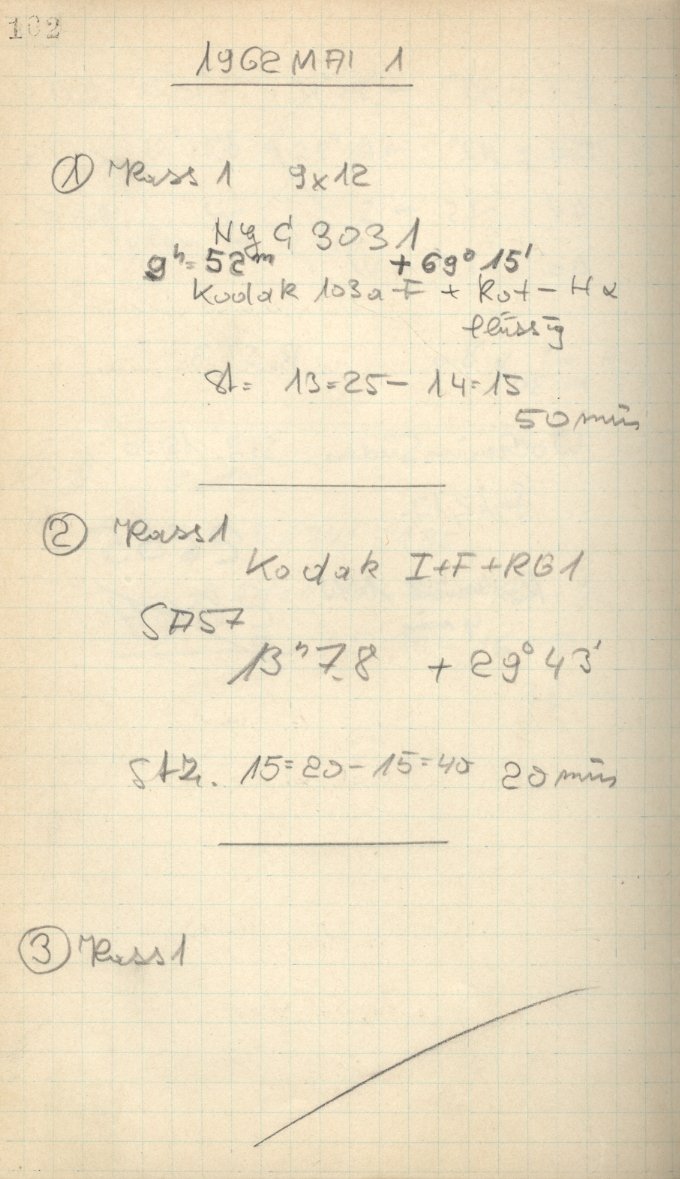 102
1962 MAI 1
① Kass 1 9x12
NgC 3031
9h= 52m +69° 15'
Kodak 103a-F + Rot-Hα
flüssig
St= 13=25 - 14=15
50 min
② Kass 1
Kodak I+F+RG1
SA57
13h 7.8 +29° 43'
Stz. 15=20 - 15=40 20 min
③ Kass 1